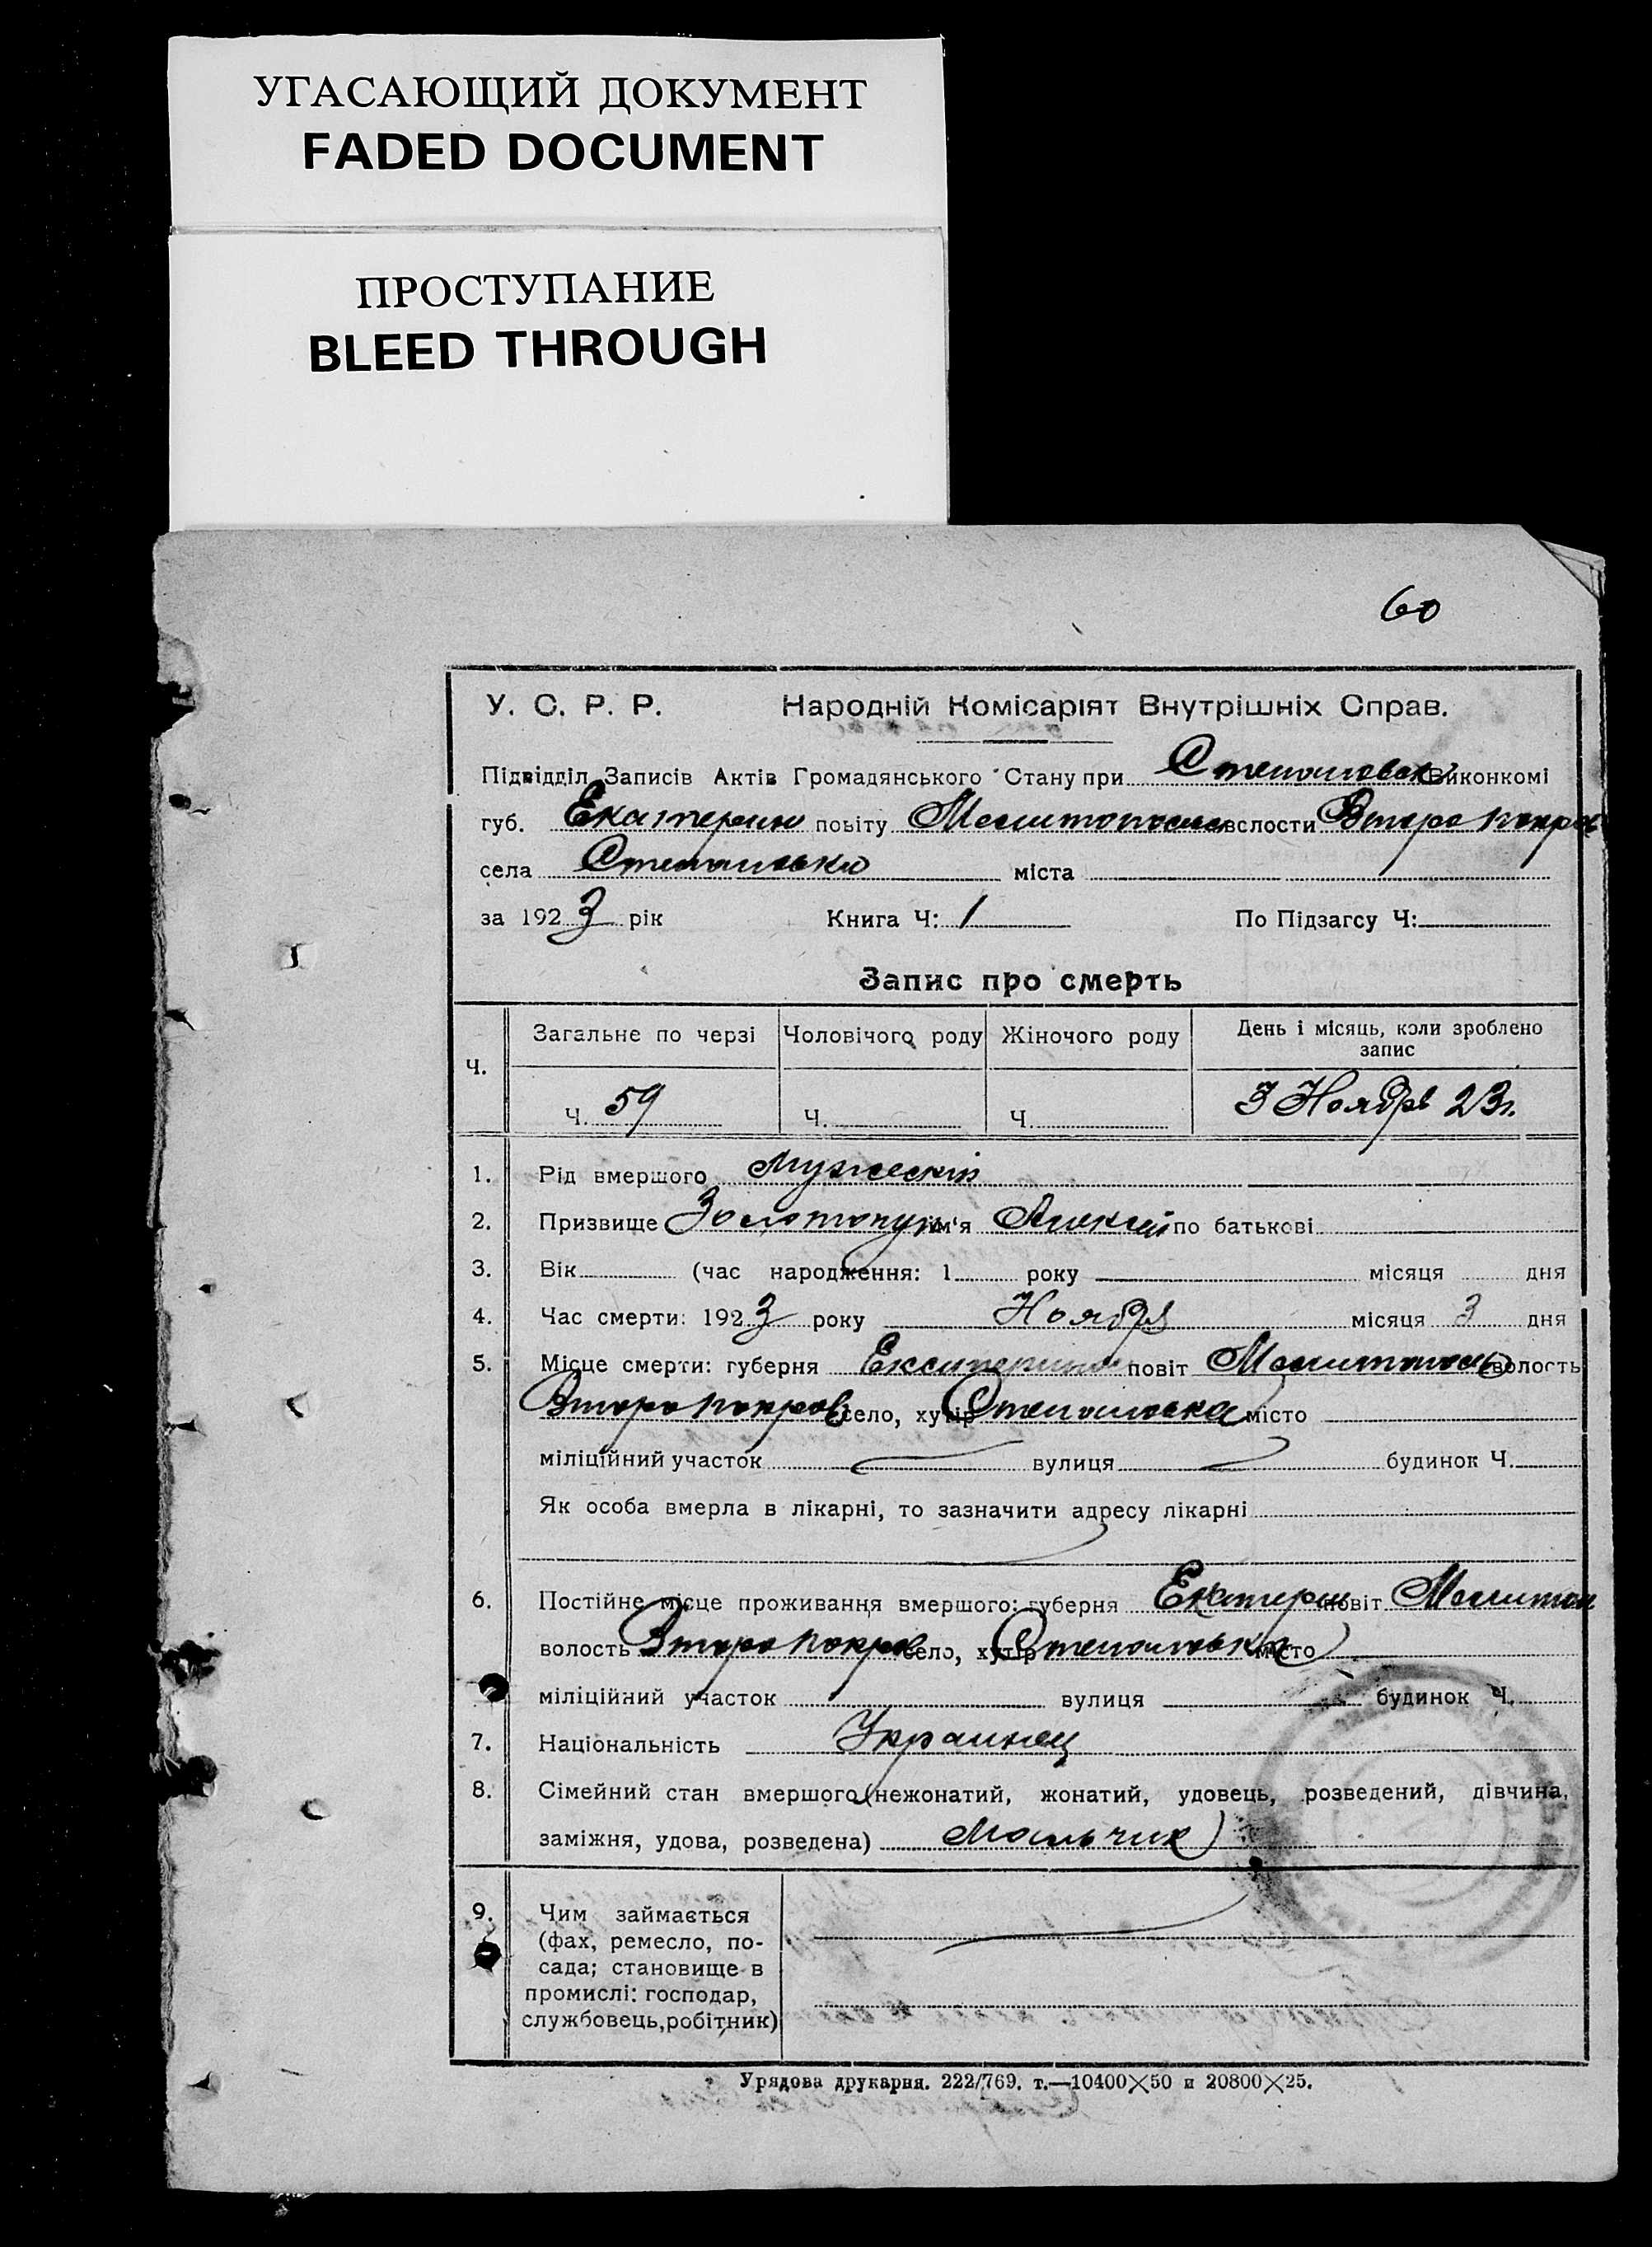 УГАСАЮЩИЙ ДОКУМЕНТ
FADED DOCUMENT
ПРОСТУПАНИЕ
BLEED THROUGH
60
У. С. Р. Р. Народній Комісаріят Внутрішніх Справ.
Підвідділ Записів Актів Громадянського Стану при Степановск Виконкомі
губ. Екатерин повіту Мелитопольс волости Второ покров
села Степановки міста
за 1923 рік Книга Ч: 1 По Підзагсу Ч:
Запис про смерть
Ч. Загальне по черзі Чоловічого роду Жіночого роду День і місяць, коли зроблено запис
Ч. 59 Ч. Ч. 3 Ноября 23г.
1. Рід вмершого Мужеский
2. Призвище ім'я Алексей по батькові
3. Вік (час народження: 1 року місяця дня
4. Час смерти: 1923 року Ноября місяця 3 дня
5. Місце смерти: губерня Екатерин повіт Мелитополь волость
Второ покров село, хутір Степановка місто
міліційний участок вулиця будинок Ч.
Як особа вмерла в лікарні, то зазначити адресу лікарні
6. Постійне місце проживання вмершого: губерня Екатерин повіт Мелитоп
волость Второ покров село, хутір Степановка місто
міліційний участок вулиця будинок Ч.
7. Національність Украинец
8. Сімейний стан вмершого (нежонатий, жонатий, удовець, розведений, дівчина,
заміжня, удова, розведена) Мальчик
9. Чим займається
(фах, ремесло, по-
сада; становище в
промислі: господар,
службовець, робітник)
Урядова друкарня. 222/769. т.—10400×50 и 20800×25.